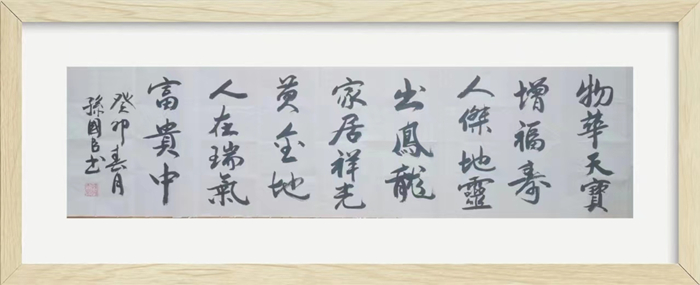 物華天寶
增福壽
人傑地靈
出鳳龍
家居祥光
黄金地
人在瑞氣
富貴中
癸卯春月
孫國良书